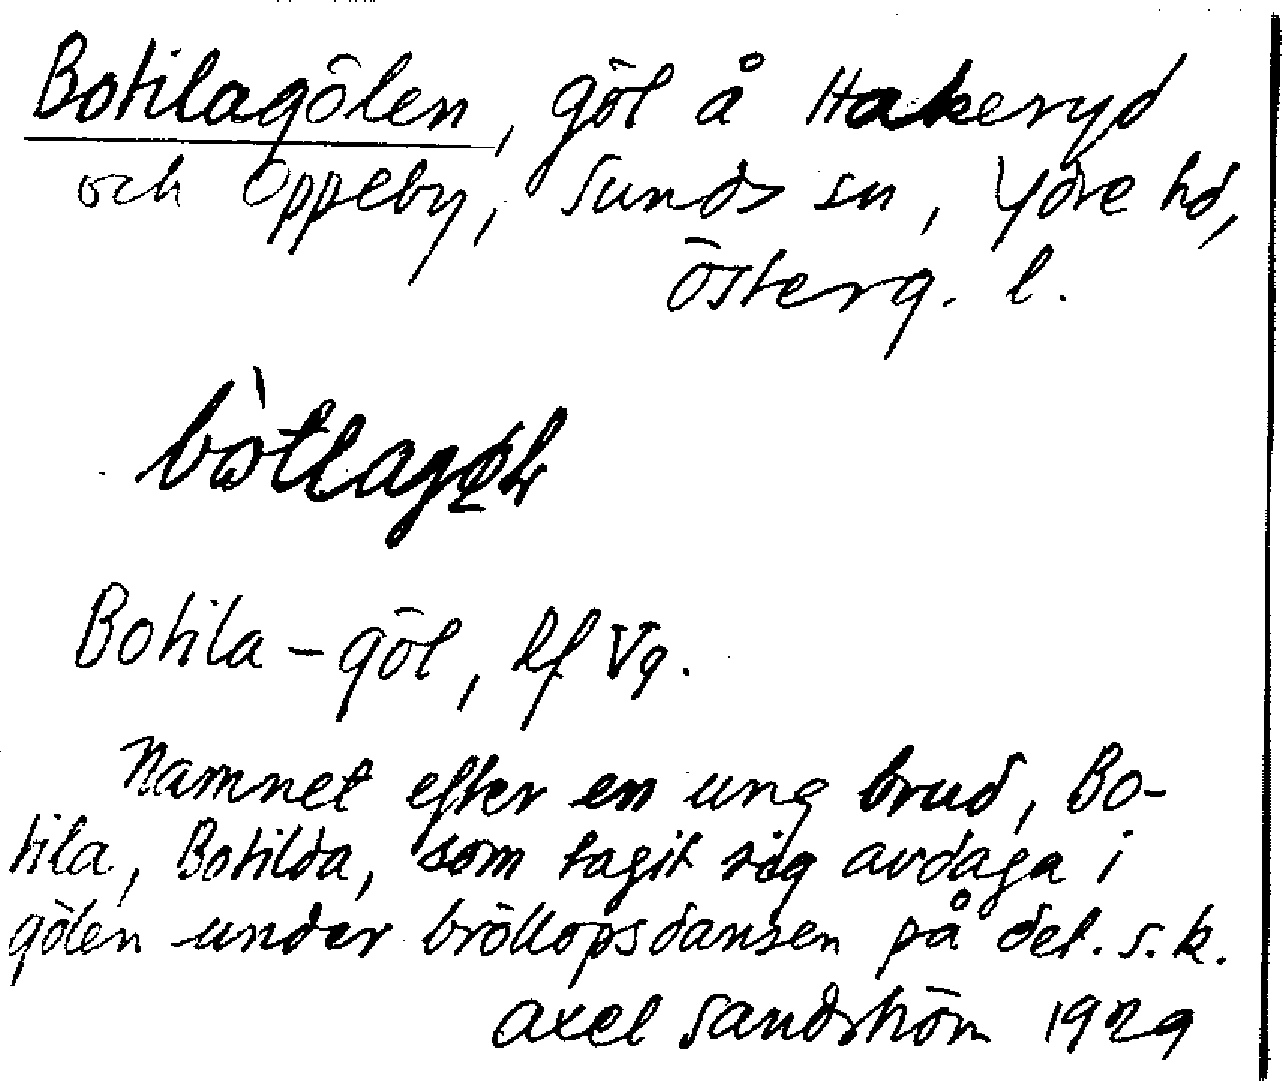 Botilagölen, göl å Hakeryd
och Oppeby, Sunds sn, Ydre hd,
Österg. l.
Botila-göl, Vg.
Namnet efter en ung brud, Bo-
tila, Botilda, som tagit sig avdaga i
gölen under bröllopsdansen på det. s.k.
Axel Sandström 1929